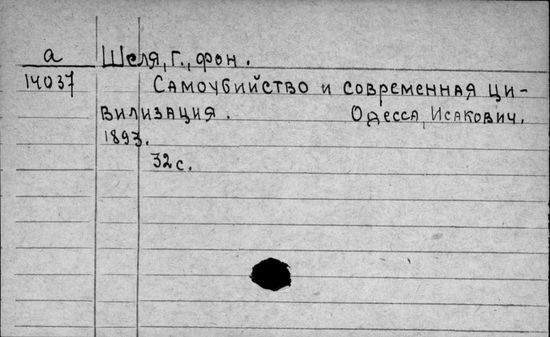 а Шеля, Г., фон.
14037 Самоубийство и современная ци-
вилизация. Одесса, Исакович.
1893.
32 с.